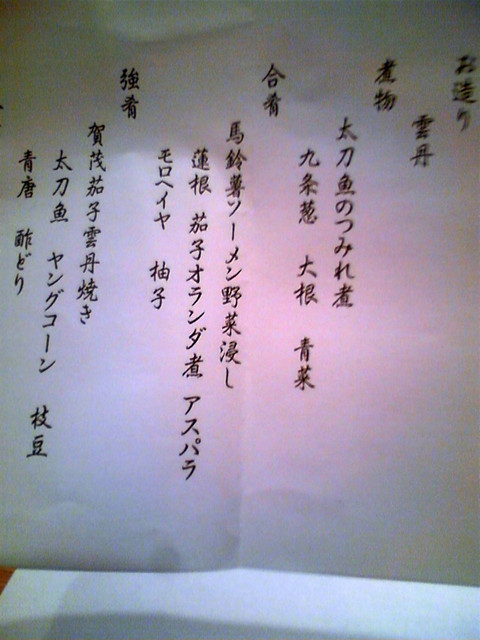 お造り
雲丹
煮物
太刀魚のつみれ煮
九条葱 大根 青菜
合肴
馬鈴薯ソーメン野菜浸し
蓮根 茄子オランダ煮 アスパラ
モロヘイヤ 柚子
強肴
賀茂茄子雲丹焼き
太刀魚 ヤングコーン 枝豆
青唐 酢どり